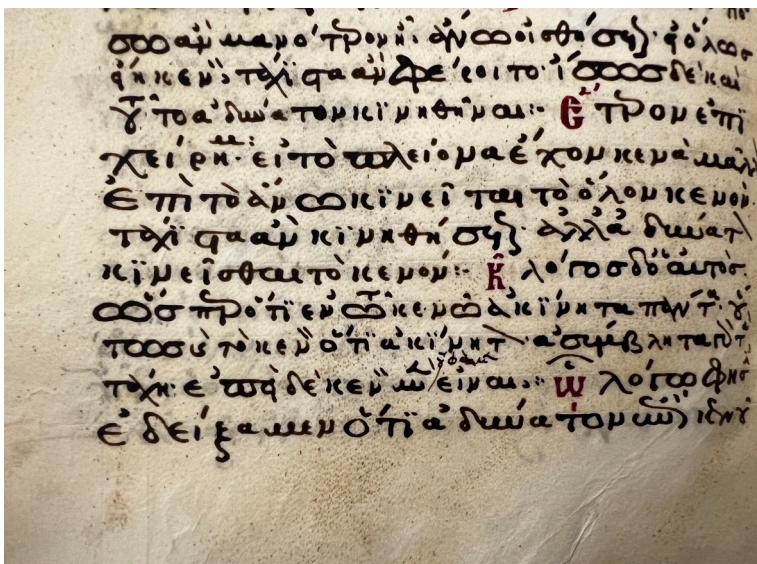 σσον ἂν μανότερον ἢ ἄνω οἰσθήσεται. εἰ ὅλως
ἦν κενὸν τάχιστα ἂν φέροιτο. ἴσως δὲ καὶ
τοῦτο ἀδύνατον κινηθῆναι:- Ἕτερον ἐπι
χείρημα: εἰ τὸ πλείονα ἔχον κενὰ μᾶλλ
ἐπὶ τὸ ἄνω κινεῖται τὸ ὅλον κενὸν
τάχιστα ἂν κινηθήσεται. ἀλλὰ ἀδύνατ
κινεῖσθαι τὸ κενόν:- Κ λόγος δ ὁ αὐτὸς
ὥσπερ ὅτι ἐν τῷ κενῷ ἀκίνητα πάντα. οὕ
τως καὶ τὸ κενὸν ὅτι ἀκίνητ. ἀσύμβλητα γὰρ τ
τάχη. ἐπεὶ δὲ κενὸν μὲν οὔ φαμεν εἶναι:- ᾧ λόγῳ φησ
ἐδείξαμεν ὅτι ἀδύνατον